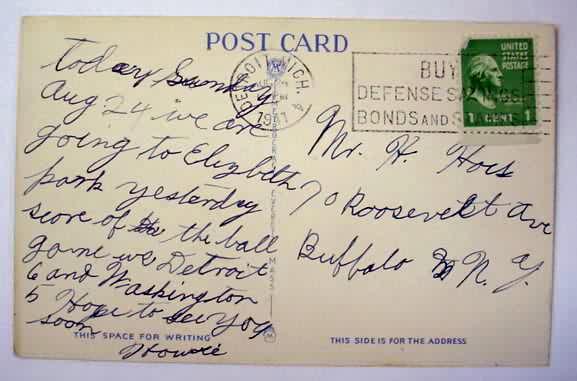 POST CARD
today Sunday
Aug 24 we are
going to Elizbeth
park yesterday
score of the ball
game we Detroit
6 and Washington
5 Hope to see you
soon
Howie
THIS SPACE FOR WRITING
DETROIT, MICH.
1941
BUY
DEFENSE SAVINGS
BONDS AND
UNITED
STATES
POSTAGE
1 CENT 1
Mr. H. Hoes
70 Roosevelt Ave
Buffalo N. Y.
THIS SIDE IS FOR THE ADDRESS